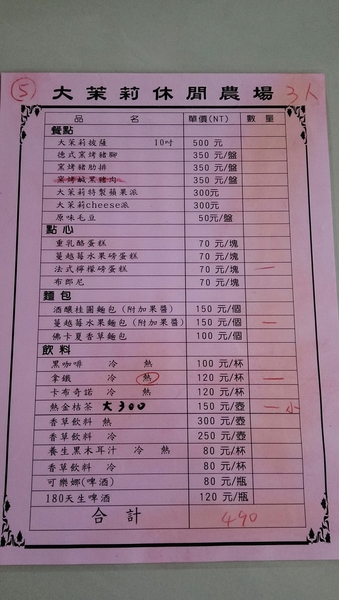 ⑤ 大茉莉休閒農場 3人
品 名 單價(NT) 數量
餐點
大茉莉披薩 10吋 500 元
德式窯烤豬腳 350 元/盤
窯烤豬肋排 350 元/盤
窯烤鹹黑豬肉 350 元/盤
大茉莉特製蘋果派 300元
大茉莉cheese派 300元
原味毛豆 50元/盤
點心
重乳酪蛋糕 70 元/塊
蔓越莓水果磅蛋糕 70 元/塊
法式檸檬磅蛋糕 70 元/塊 一
布郎尼 70 元/塊
麵包
酒釀桂圓麵包(附加果醬) 150 元/個
蔓越莓水果麵包(附加果醬) 150 元/個 一
佛卡夏香草麵包 100 元/個
飲料
黑咖啡 冷 熱 100 元/杯
拿鐵 冷 熱 120 元/杯 一
卡布奇諾 冷 熱 120 元/杯
熱金桔茶 大300 150 元/壺 一小
香草飲料 熱 300 元/壺
香草飲料 冷 250 元/壺
養生黑木耳汁 冷 熱 80 元/杯
香草飲料 冷 80 元/杯
可樂娜(啤酒) 80 元/瓶
180天生啤酒 120 元/瓶
合計 490